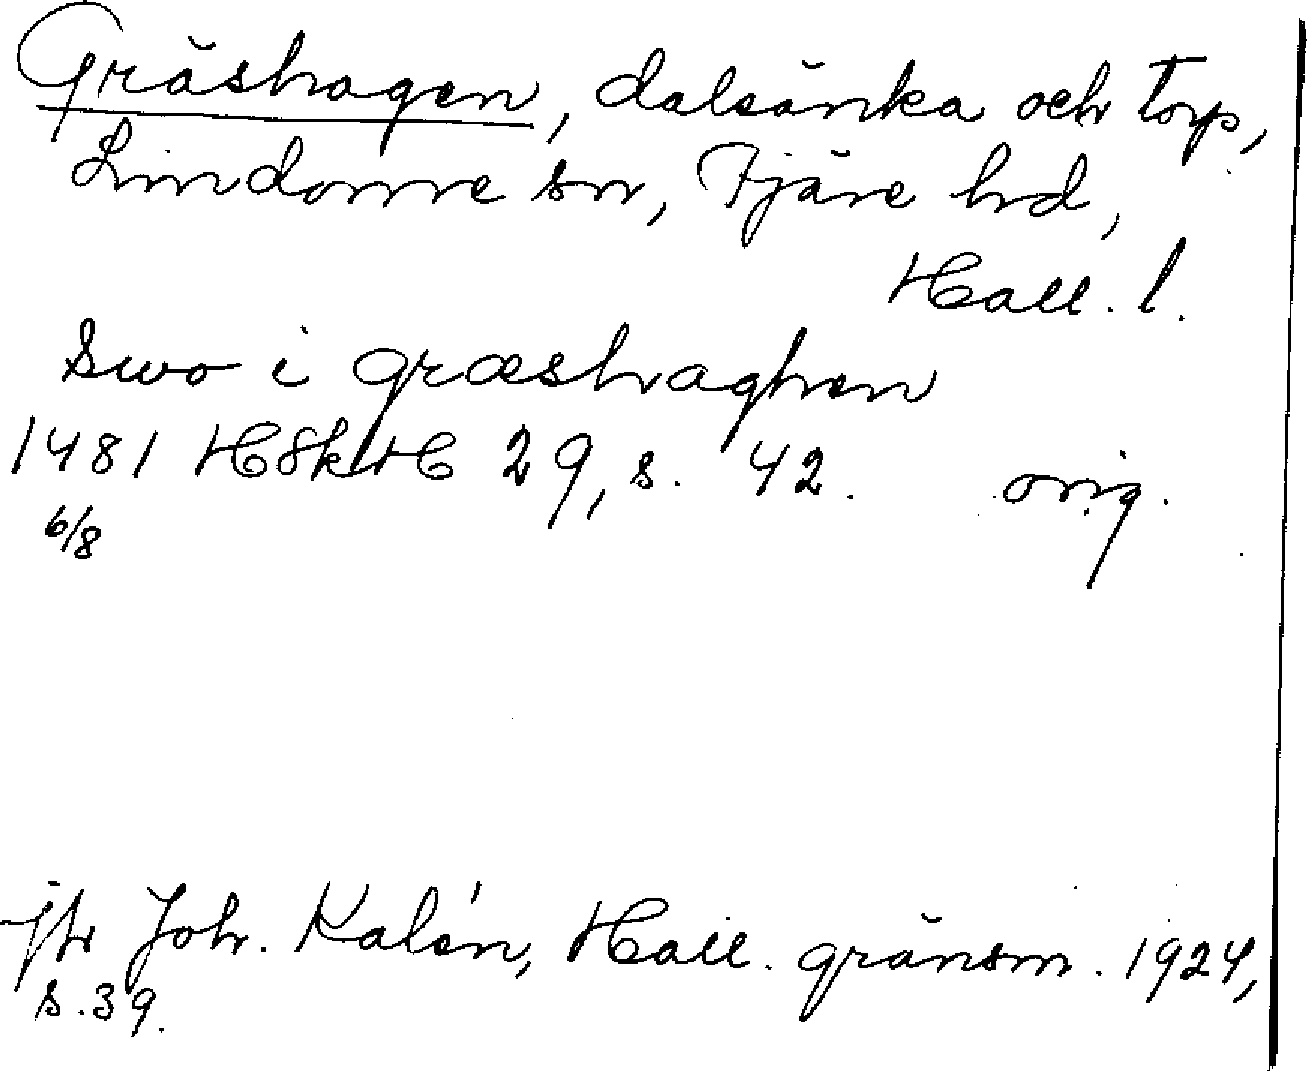 Gräshagen, dalsänka och torp,
Lindome sn, Fjäre hd,
Hall. l.
Swo i græshaghen
1481 HSkH 29, s. 42. orig.
6/8
jfr Joh. Kalén, Hall. gränsm. 1924,
s. 39.